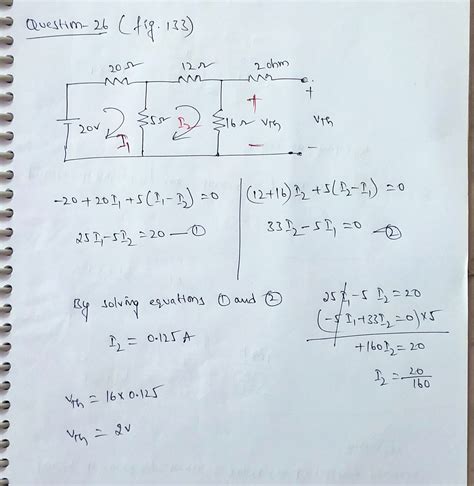 Question-26 (fig. 133)
20Ω 12Ω 2 ohm
+ +
20V 5Ω 16Ω Vth Vth
I1 I2
- -
-20+20I1+5(I1-I2)=0
25I1-5I2=20 —①
(12+16)I2+5(I2-I1)=0
33I2-5I1=0 —②
By solving equations ① and ②
I2 = 0.125A
25I1-5I2=20
(-5I1+33I2=0)×5
+160I2=20
I2=20/160
Vth = 16×0.125
Vth = 2V